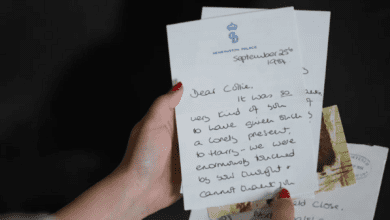 KENSINGTON PALACE
September 25th
1984
Dear Collie,
It was so
very kind of you
to have given such
a lovely present,
to Harry - we were
enormously touched
by
cannot thank you
Close.